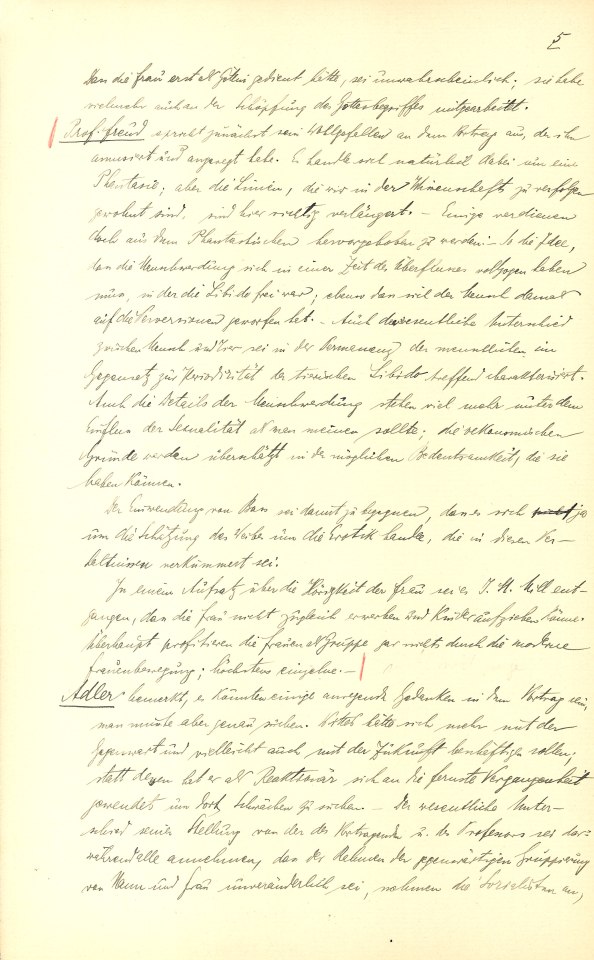 5
Dass die Frau erst als Götein gedient hätte, sei unwahrscheinlich; sie habe
vielmehr auch an der Schöpfung des Gottesbegriffes mitgearbeitet.
Prof. Freud spricht zunächst sein Wohlgefallen an dem Vortrag aus, der ihn
amusiert und angeregt habe. Es handle sich natürlich dabei um eine
Phantasie; aber die Linien, die wir in der Wissenschaft zu verfolgen
gewohnt sind, sind hier richtig verlängert. – Einige verdienen
doch aus dem Phantastischen hervorgehoben zu werden: – So die Idee,
dass die Menschwerdung sich in einer Zeit des Überflusses vollzogen haben
muss, in der die Libido frei war; ebenso dass sich der Mensch damals
auf die Perversionen geworfen hat. – Auch der wesentliche Unterschied
zwischen Mensch und Tier sei in der Permanenz der menschlichen, im
Gegensatz zur Periodizität der tierischen Libido treffend charakterisiert.
Auch die Details der Menschwerdung stehen viel mehr unter dem
Einfluss der Sexualität als man meinen sollte; die oekonomischen
Gründe werden überschätzt in der möglichen Bedeutsamkeit, die sie
haben können.
Der Einwendung von Bass sei damit zu begegnen, dass es sich ja
um die Schätzung des Weibes, um die Erotik handle, die in diesen Ver-
hältnissen verkümmert sei.
In einem Aufsatz über die Hörigkeit der Frau sei es J. St. Mill ent-
gangen, dass die Frau nicht zugleich erwerben und Kinder aufziehen könne.
Überhaupt profitieren die Frauen als Gruppe gar nichts durch die moderne
Frauenbewegung; höchstens einzelne. –
Adler bemerkt, es könnten einige anregende Gedanken in dem Vortrag sein,
man müsse aber genau suchen. Wittels hätte sich mehr mit der
Gegenwart und vielleicht auch mit der Zukunft beschäftigen sollen;
statt dessen hat er als Reaktionär sich an die fernste Vergangenheit
gewendet um dort Schwächen zu suchen. – Der wesentliche Unter-
schied seiner Stellung von der des Vortragenden u. des Professors sei dass
während alle annehmen, dass der Rahmen der gegenwärtigen Gruppierung
von Mann und Frau unveränderlich sei, nehmen die Sozialisten an,